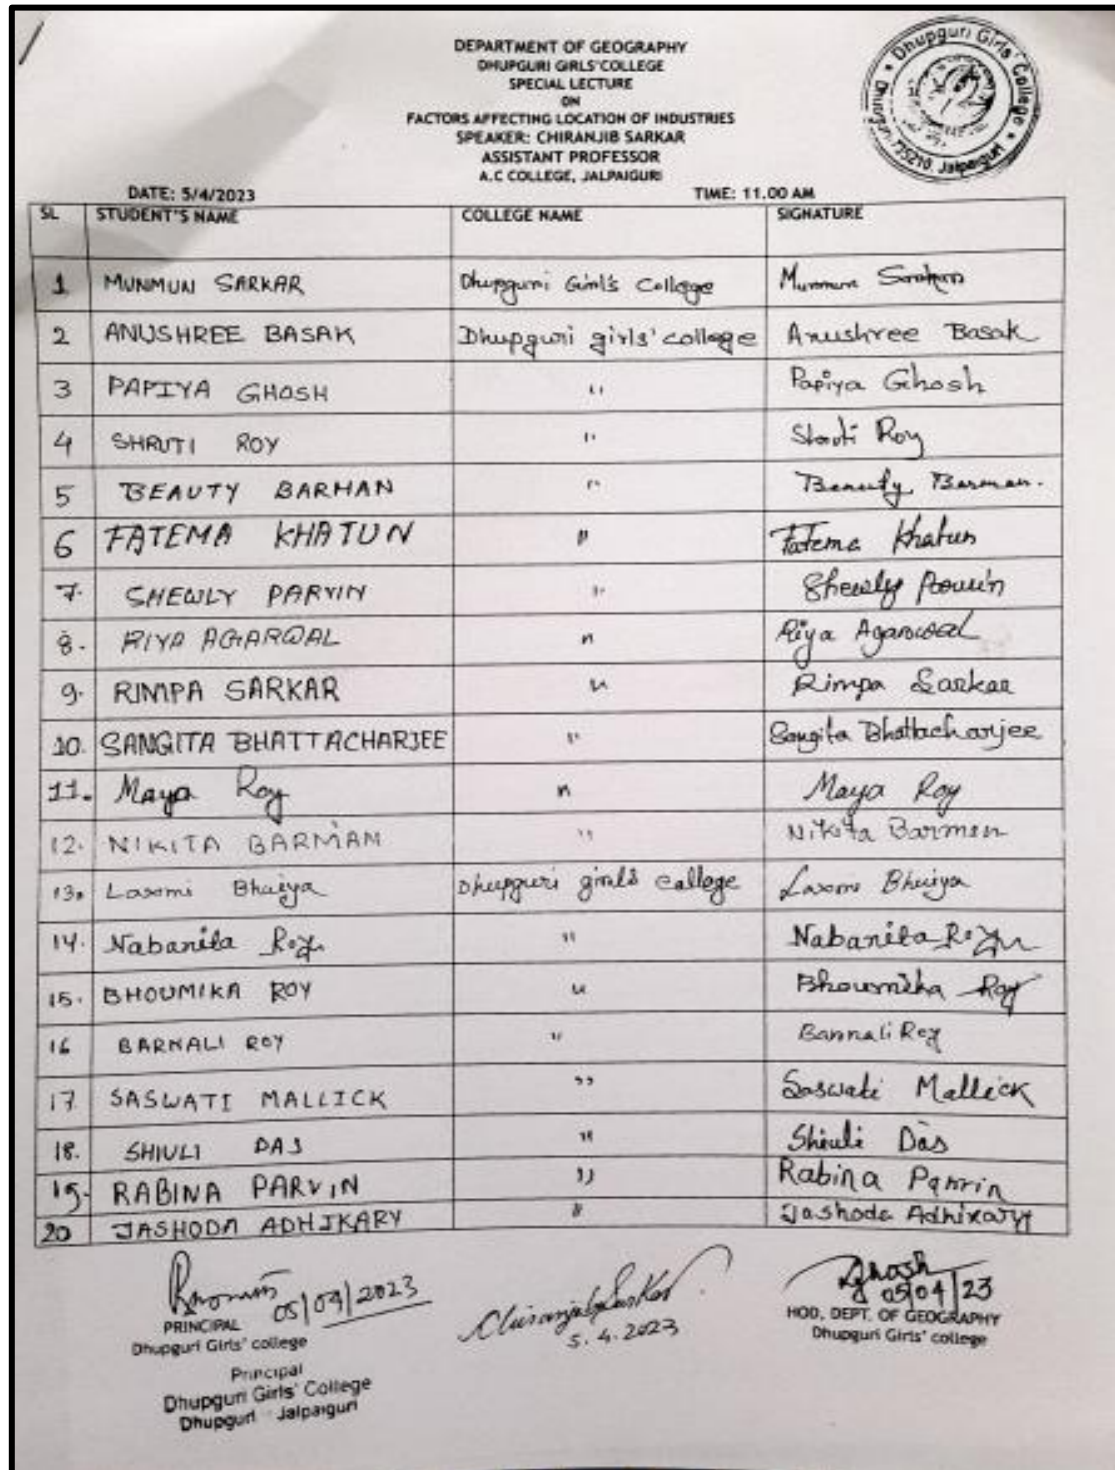 DEPARTMENT OF GEOGRAPHY
DHUPGURI GIRLS'COLLEGE
SPECIAL LECTURE
ON
FACTORS AFFECTING LOCATION OF INDUSTRIES
SPEAKER: CHIRANJIB SARKAR
ASSISTANT PROFESSOR
A.C COLLEGE, JALPAIGURI
Dhupguri Girls' College
Dhupguri Jalpaiguri
DATE: 5/4/2023 TIME: 11.00 AM
SL STUDENT'S NAME COLLEGE NAME SIGNATURE
1 MUNMUN SARKAR Dhupguri Girl's College Munmun Sarkar
2 ANUSHREE BASAK Dhupguri girls' college Anushree Basak
3 PAPIYA GHOSH " Papiya Ghosh
4 SHRUTI ROY " Shruti Roy
5 BEAUTY BARMAN " Beauty Barman.
6 FATEMA KHATUN " Fatema Khatun
7. SHEWLY PARVIN " Shewly Parvin
8. RIYA AGARWAL " Riya Agarwal
9. RIMPA SARKAR " Rimpa Sarkar
10. SANGITA BHATTACHARJEE " Sangita Bhattacharjee
11. Maya Roy " Maya Roy
12. NIKITA BARMAM " Nikita Barman
13. Laxmi Bhuiya Dhupguri girls college Laxmi Bhuiya
14. Nabanita Roy " Nabanita Roy
15. BHOUMIKA ROY " Bhoumika Roy
16 BARNALI ROY " Barnali Roy
17 SASWATI MALLICK " Saswati Mallick
18. SHIULI DAS " Shiuli Das
19. RABINA PARVIN " Rabina Parvin
20 JASHODA ADHIKARY " Jashoda Adhikary
05/04/2023
PRINCIPAL
Dhupguri Girls' college
Principal
Dhupguri Girls' College
Dhupguri Jalpaiguri
Chiranjib Sarkar
5.4.2023
Ghosh
05/04/23
HOD, DEPT. OF GEOGRAPHY
Dhupguri Girls' college